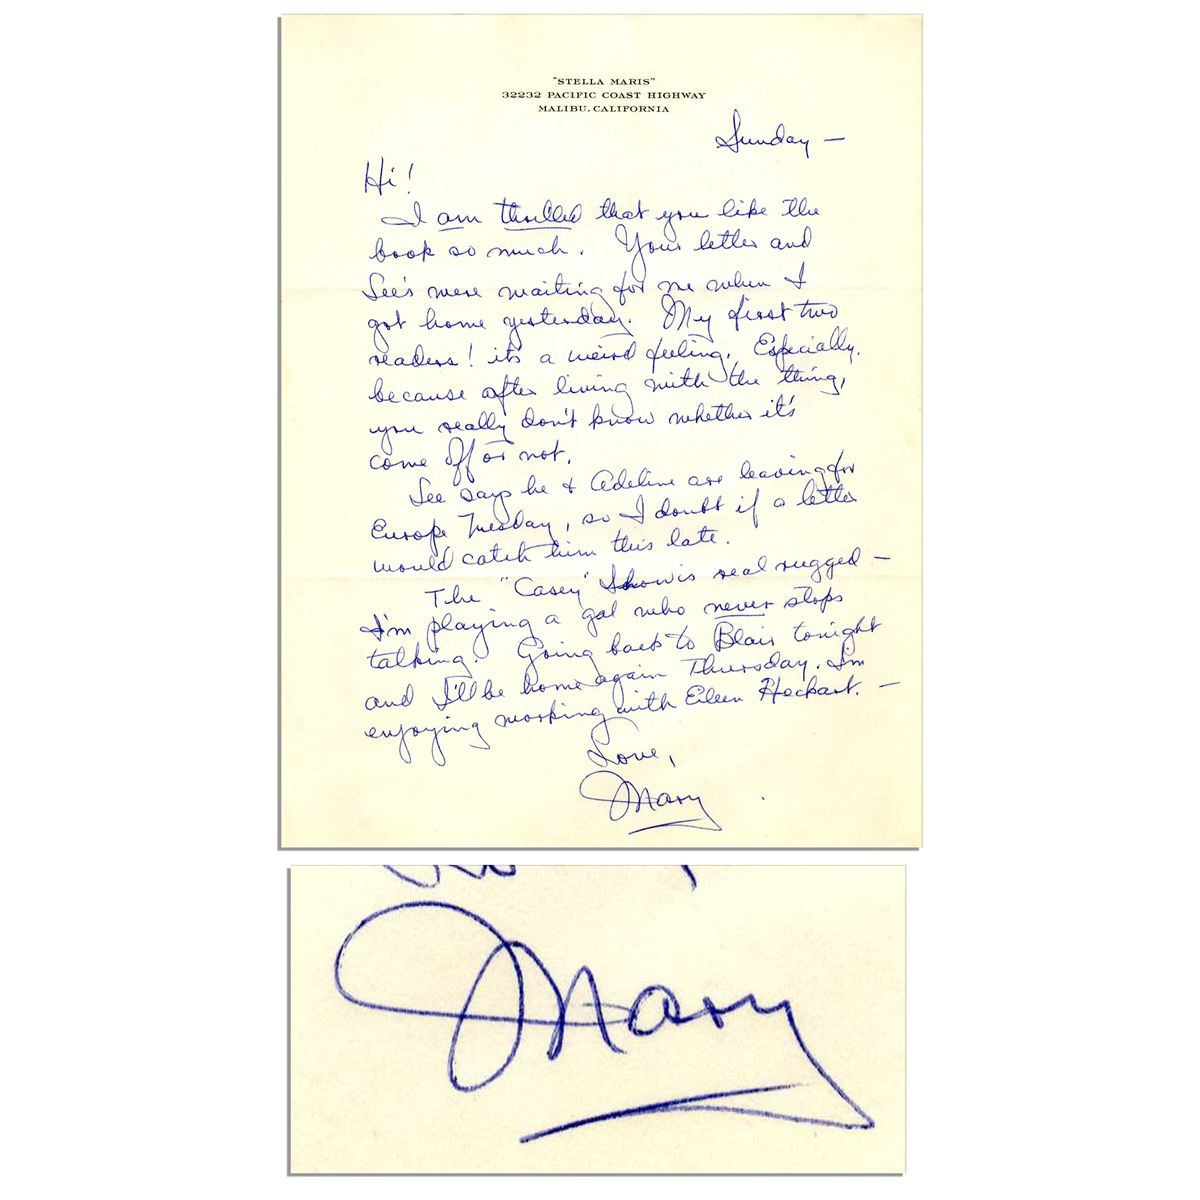 "STELLA MARIS"
32232 PACIFIC COAST HIGHWAY
MALIBU, CALIFORNIA
Sunday —
Hi!
I am thrilled that you like the
book so much. Your letter and
Lee's were waiting for me when I
got home yesterday. My first two
readers! it's a weird feeling. Especially.
because after living with the thing,
you really don't know whether it's
come off or not.
Lee says he & Adeline are leaving for
Europe Tuesday, so I doubt if a letter
would catch him this late.
The "Casey" Show is real rugged —
I'm playing a gal who never stops
talking. Going back to Blair tonight
and I'll be home again Thursday. I'm
enjoying working with Eileen Heckart. —
Love,
Mary
Mary